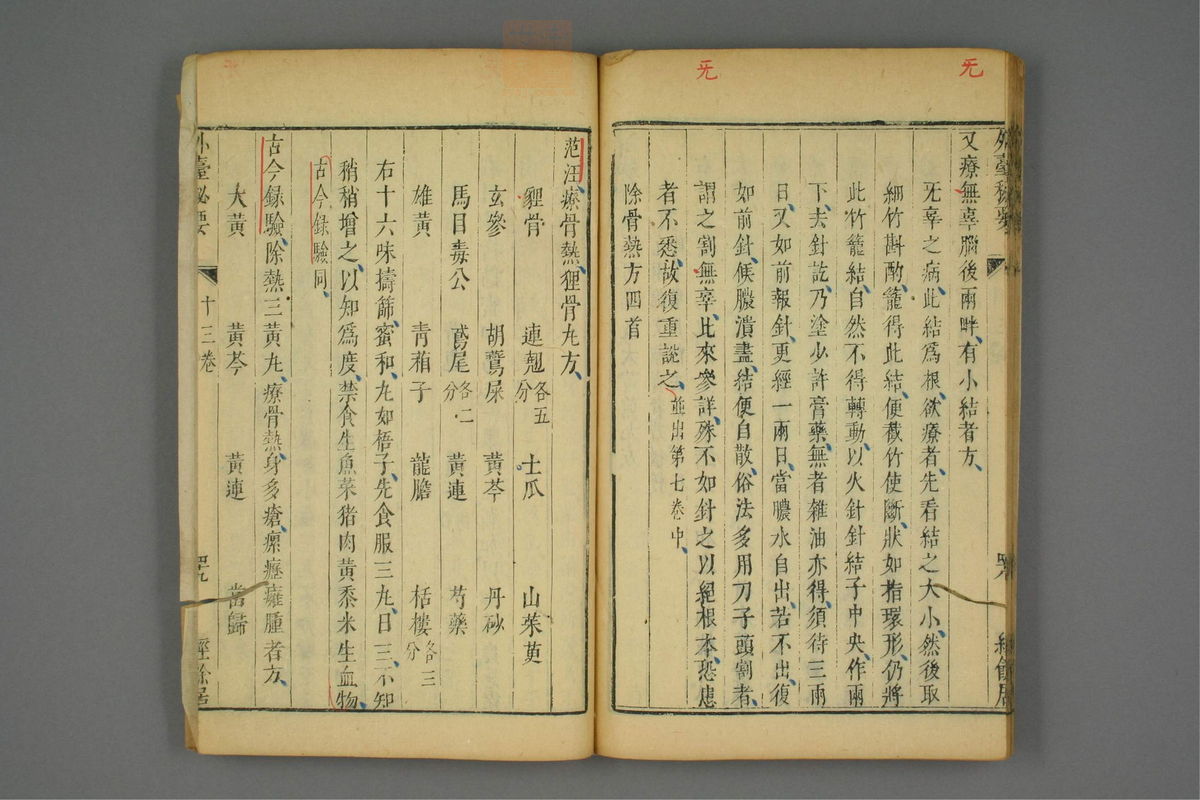 旡
旡
外臺秘要
又療無辜腦後兩畔有小結者方
旡辜之病此結爲根欲療者先看結之大小然後取
細竹斟酌籠得此結便截竹使斷狀如指環形仍將
此竹籠結自然不得轉動以火針針結子中央作兩
下去針訖乃塗少許膏藥無者雜油亦得須待三兩
日又如前報針更經一兩日當膿水自出若不出復
如前針候膿潰盡結便自散俗法多用刀子頭割者
謂之割無辜比來參詳殊不如針之以絕根本恐患
者不悉故復重說之並出第七卷中
除骨熱方四首
范汪療骨熱貍骨丸方
貍骨 連翹各五分 土瓜 山茱萸
玄參 胡鷰屎 黃芩 丹砂
馬目毒公 鳶尾各二分 黃連 芍藥
雄黃 青葙子 龍膽 栝樓各三分
右十六味擣篩蜜和丸如梧子先食服三丸日三不知
稍稍增之以知爲度禁食生魚菜猪肉黃黍米生血物
古今録驗同
古今録驗除熱三黃丸療骨熱身多瘡瘰癧癰腫者方
大黃 黃芩 黃連 當歸
外臺秘要 十三卷 經餘居